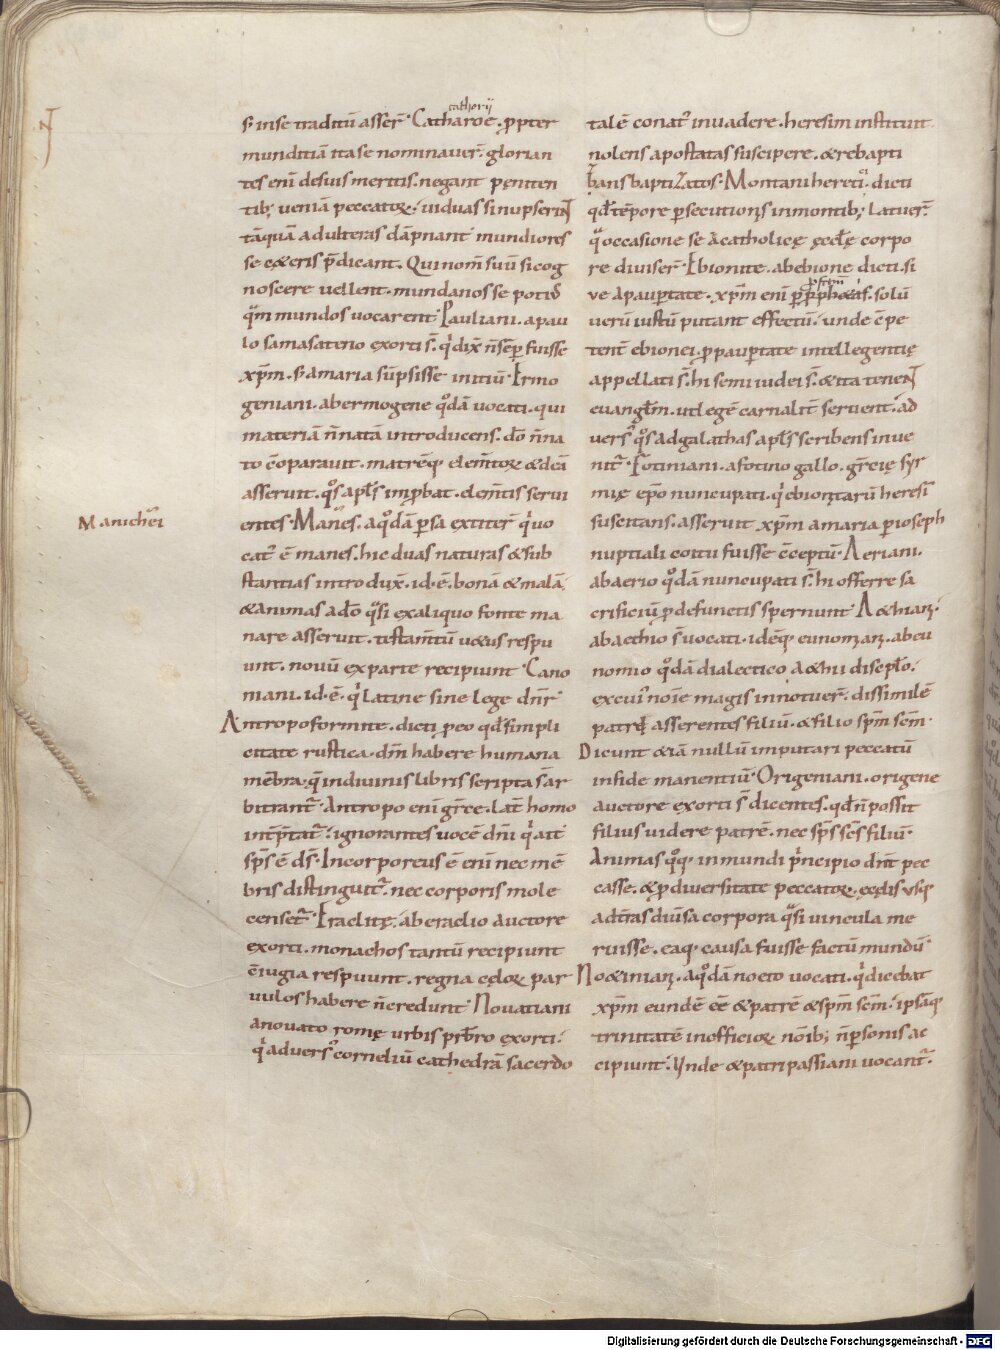 s; inse traditū asser̄. Catharoe. ꝓpter
catharii
munditiā itase nominauer̄. glorian
tes eni desuis meritis. negant pęniten
tib; ueniā peccatoꝝ. uiduas si nupserint
tāquā adulteras dāpnant mundiores
se cęteris p̄dicant. Qui nom̄ suū si cog
noscere uellent. mundanos se potiꝰ
quā mundos uocarent. Pauliani. apau
lo samasateno exorti s̄. qͥ dix̄ n̄ sēp fuisse
xp̄m. s; amaria sūpsisse initiū. Irmo
geniani. abermogene qͦdā uocati. qui
materiā n̄ natā introducens. dō n̄ na
to c̄oparauit. matrēq; elem̄toꝝ & deā
asseruit. qͦs apl̄s imꝓbat. elem̄tis serui
entes. Manes. aqͦdā ꝑsa extiter̄ qͥ uo
Manichei
catꝰ ē manes. hic duas naturas & sub
stantias introdux̄. id. ē. bonā & malā.
& animas a dō qͣsi ex aliquo fonte ma
nare asseruit. testam̄tū uetus respu
unt. nouū ex parte recipiunt. Cano
miani. id. ē. qͥ latine sine lege dn̄r
Antropoformite. dicti ꝑeo qd̄ simpli
citate rustica. dm̄ habere humana
mēbra. quę indiuinis libris scripta s̄ ar
bitrant̄. Antropo eni gr̄ce. lat̄ homo
int̄p̄tat̄. ignorantes uocē dn̄i qͥ ait
sp̄s ē ds̄. Incorporeus ē eni nec mē
bris distinguit̄. nec corporis mole
censet̄. Iraclitę. aberaclio auctore
exorti. monachos tantū recipiunt
c̄iugia respuunt. regna cęloꝝ par
uulos habere n̄ credunt. Nouatiani
anouato romę urbis pr̄bro exorti.
qͥ aduersꝰ corneliū cathedrā sacerdo
talē conatꝰ inuadere. heresim instituit.
nolens apostatas suscipere. & rebapti
zans baptizatos. Montani hereti. dicti
qd̄ tēpore ꝑsecutionis in montib; latuer̄.
qͣ occasione se a catholicę ęccl̄ę corpo
re diuiser̄. Ebionite. abebione dicti. si
ue apauꝑtate. xp̄m eni ꝑ ꝓfectū. solū
uerū iustū putant effectū. unde c̄pe
tent̄ ebionei. ꝓ pauꝑtate intellegentię
appellati s̄. hi semiiudei s̄. & ita tenent
euangl̄m. ut legē carnalit̄ seruent. ad
uersꝰ qͦs ad galathas apl̄s scribens inue
nit̄. Fotiniani. a fotino gallo. gręcię syr
mię epō nuncupati. qͥ ebionitarū heresī
suscitans. asseruit xp̄m a maria ꝑ ioseph
nuptiali coitu fuisse c̄ceptū. Aeriani.
ab aerio qͦdā nuncupati s̄. hi offerre sa
crificiū ꝓ defunctis spernunt. Aethiani.
ab aethio s̄ uocati. idēq; eunomiani. ab eu
nomio qͦdā dialectico aethi discplō.
ex cuiꝰ noīe magis innotuer̄. dissimilē
patri asserentes filiū. & filio sp̄m scm̄.
Dicunt &iā nullū imputari peccatū
in fide manentiū. Origeniani. origene
auctore exorti s̄. dicentes. qd̄ n̄ possit
filius uidere patrē. nec sp̄s scs̄ filiū.
Animas qͦq; in mundi prīncipio dn̄t pec
casse. & ꝓ diuersitate peccatoꝝ. ęcęlis usq;
ad tr̄as diūsa corpora qͣsi uincula me
ruisse. eaq; causa fuisse factū mundū.
Noetiniani. aqͦdā noeto uocati. qͥ dicebat
xp̄m eundē eē & patrē & sp̄m scm̄. ipsāq;
trinitatē in officioꝝ nōib; n̄ ꝑsonis ac
cipiunt. Unde & patripassiani uocant̄.
Digitalisierung gefördert durch die Deutsche Forschungsgemeinschaft - DFG